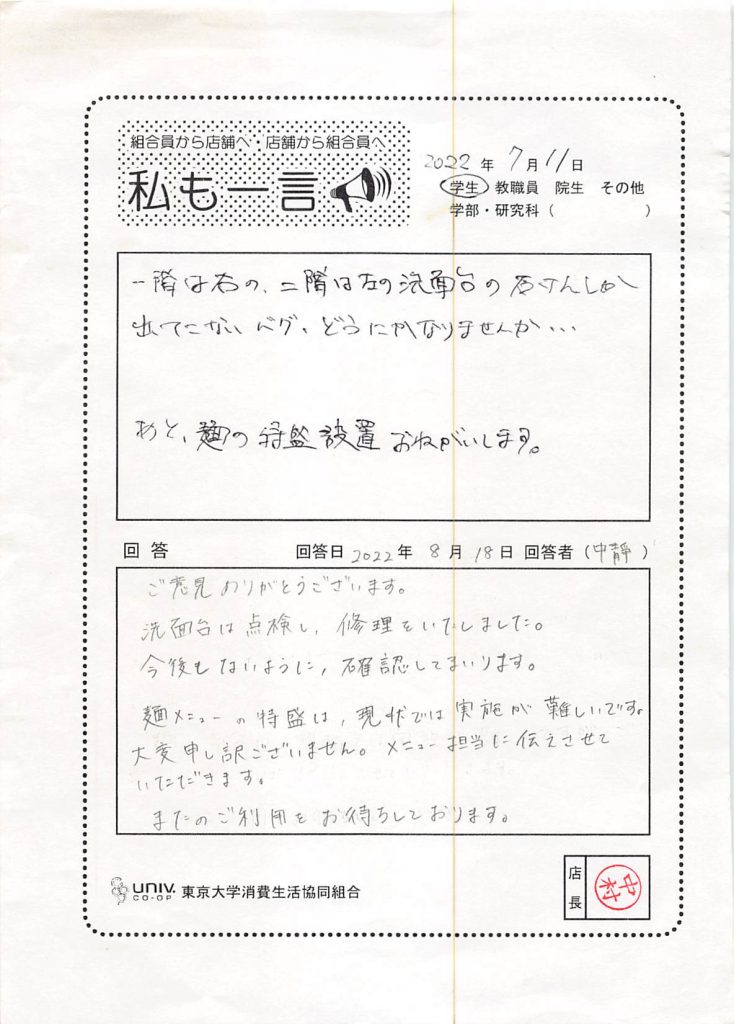 組合員から店舗へ・店舗から組合員へ
私も一言
2022年 7月 11日
学生 教職員 院生 その他
学部・研究科（ ）
一階は右の、二階は左の洗面台の石けんしか
出てこないバグ、どうにかなりませんか...
あと、麺の特盛設置おねがいします。
回答 回答日 2022年 8月 18日 回答者（中静）
ご意見ありがとうございます。
洗面台は点検し、修理をいたしました。
今後もないように、確認してまいります。
麺メニューの特盛は、現状では実施が難しいです。
大変申し訳ございません。メニュー担当に伝えさせて
いただきます。
またのご利用をお待ちしております。
UNIV. CO-OP 東京大学消費生活協同組合
店長 中村